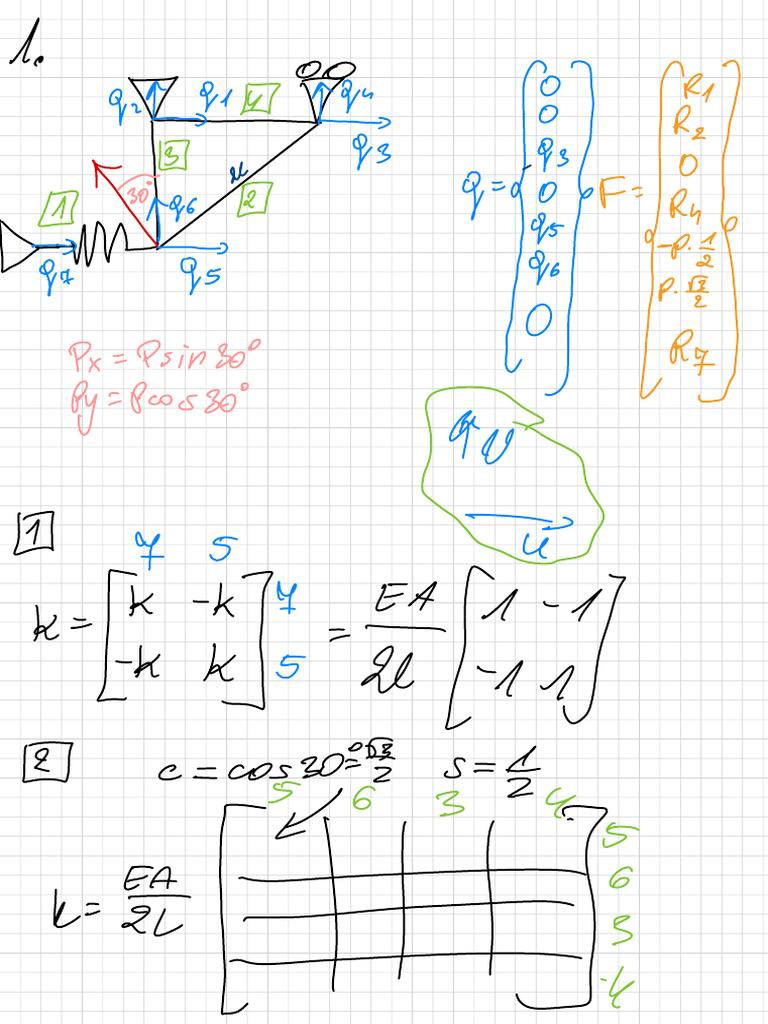 1.
q2 q1 4 q4
q3
3
30° 2l 2
1 q6
q7 q5
Q = [0 0 q3 0 q5 q6 0]
F = [R1 R2 0 R4 -P·1/2 P·√3/2 R7]
Px = Psin30°
Py = Pcos30°
v
u
1
7 5
k = [k -k] 7 = EA/2l [1 -1]
[-k k] 5 [-1 1]
2 c = cos30° = √3/2 s = 1/2
5 6 3 4
k = EA/2l
5
6
3
4